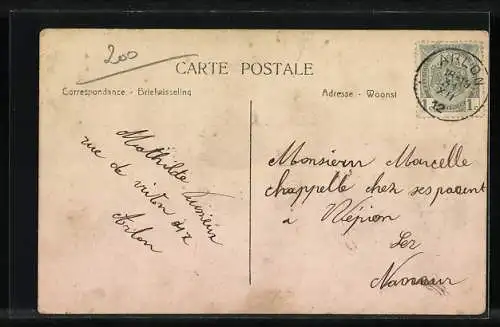 200
CARTE POSTALE
Correspondance - Briefwisseling
Adresse - Woonst
ARLON
12
1 1
Mathilde
rue de virton
Arlon
Monsieur Marcelle
chappelle chez ses parent
a
Lez
Namur